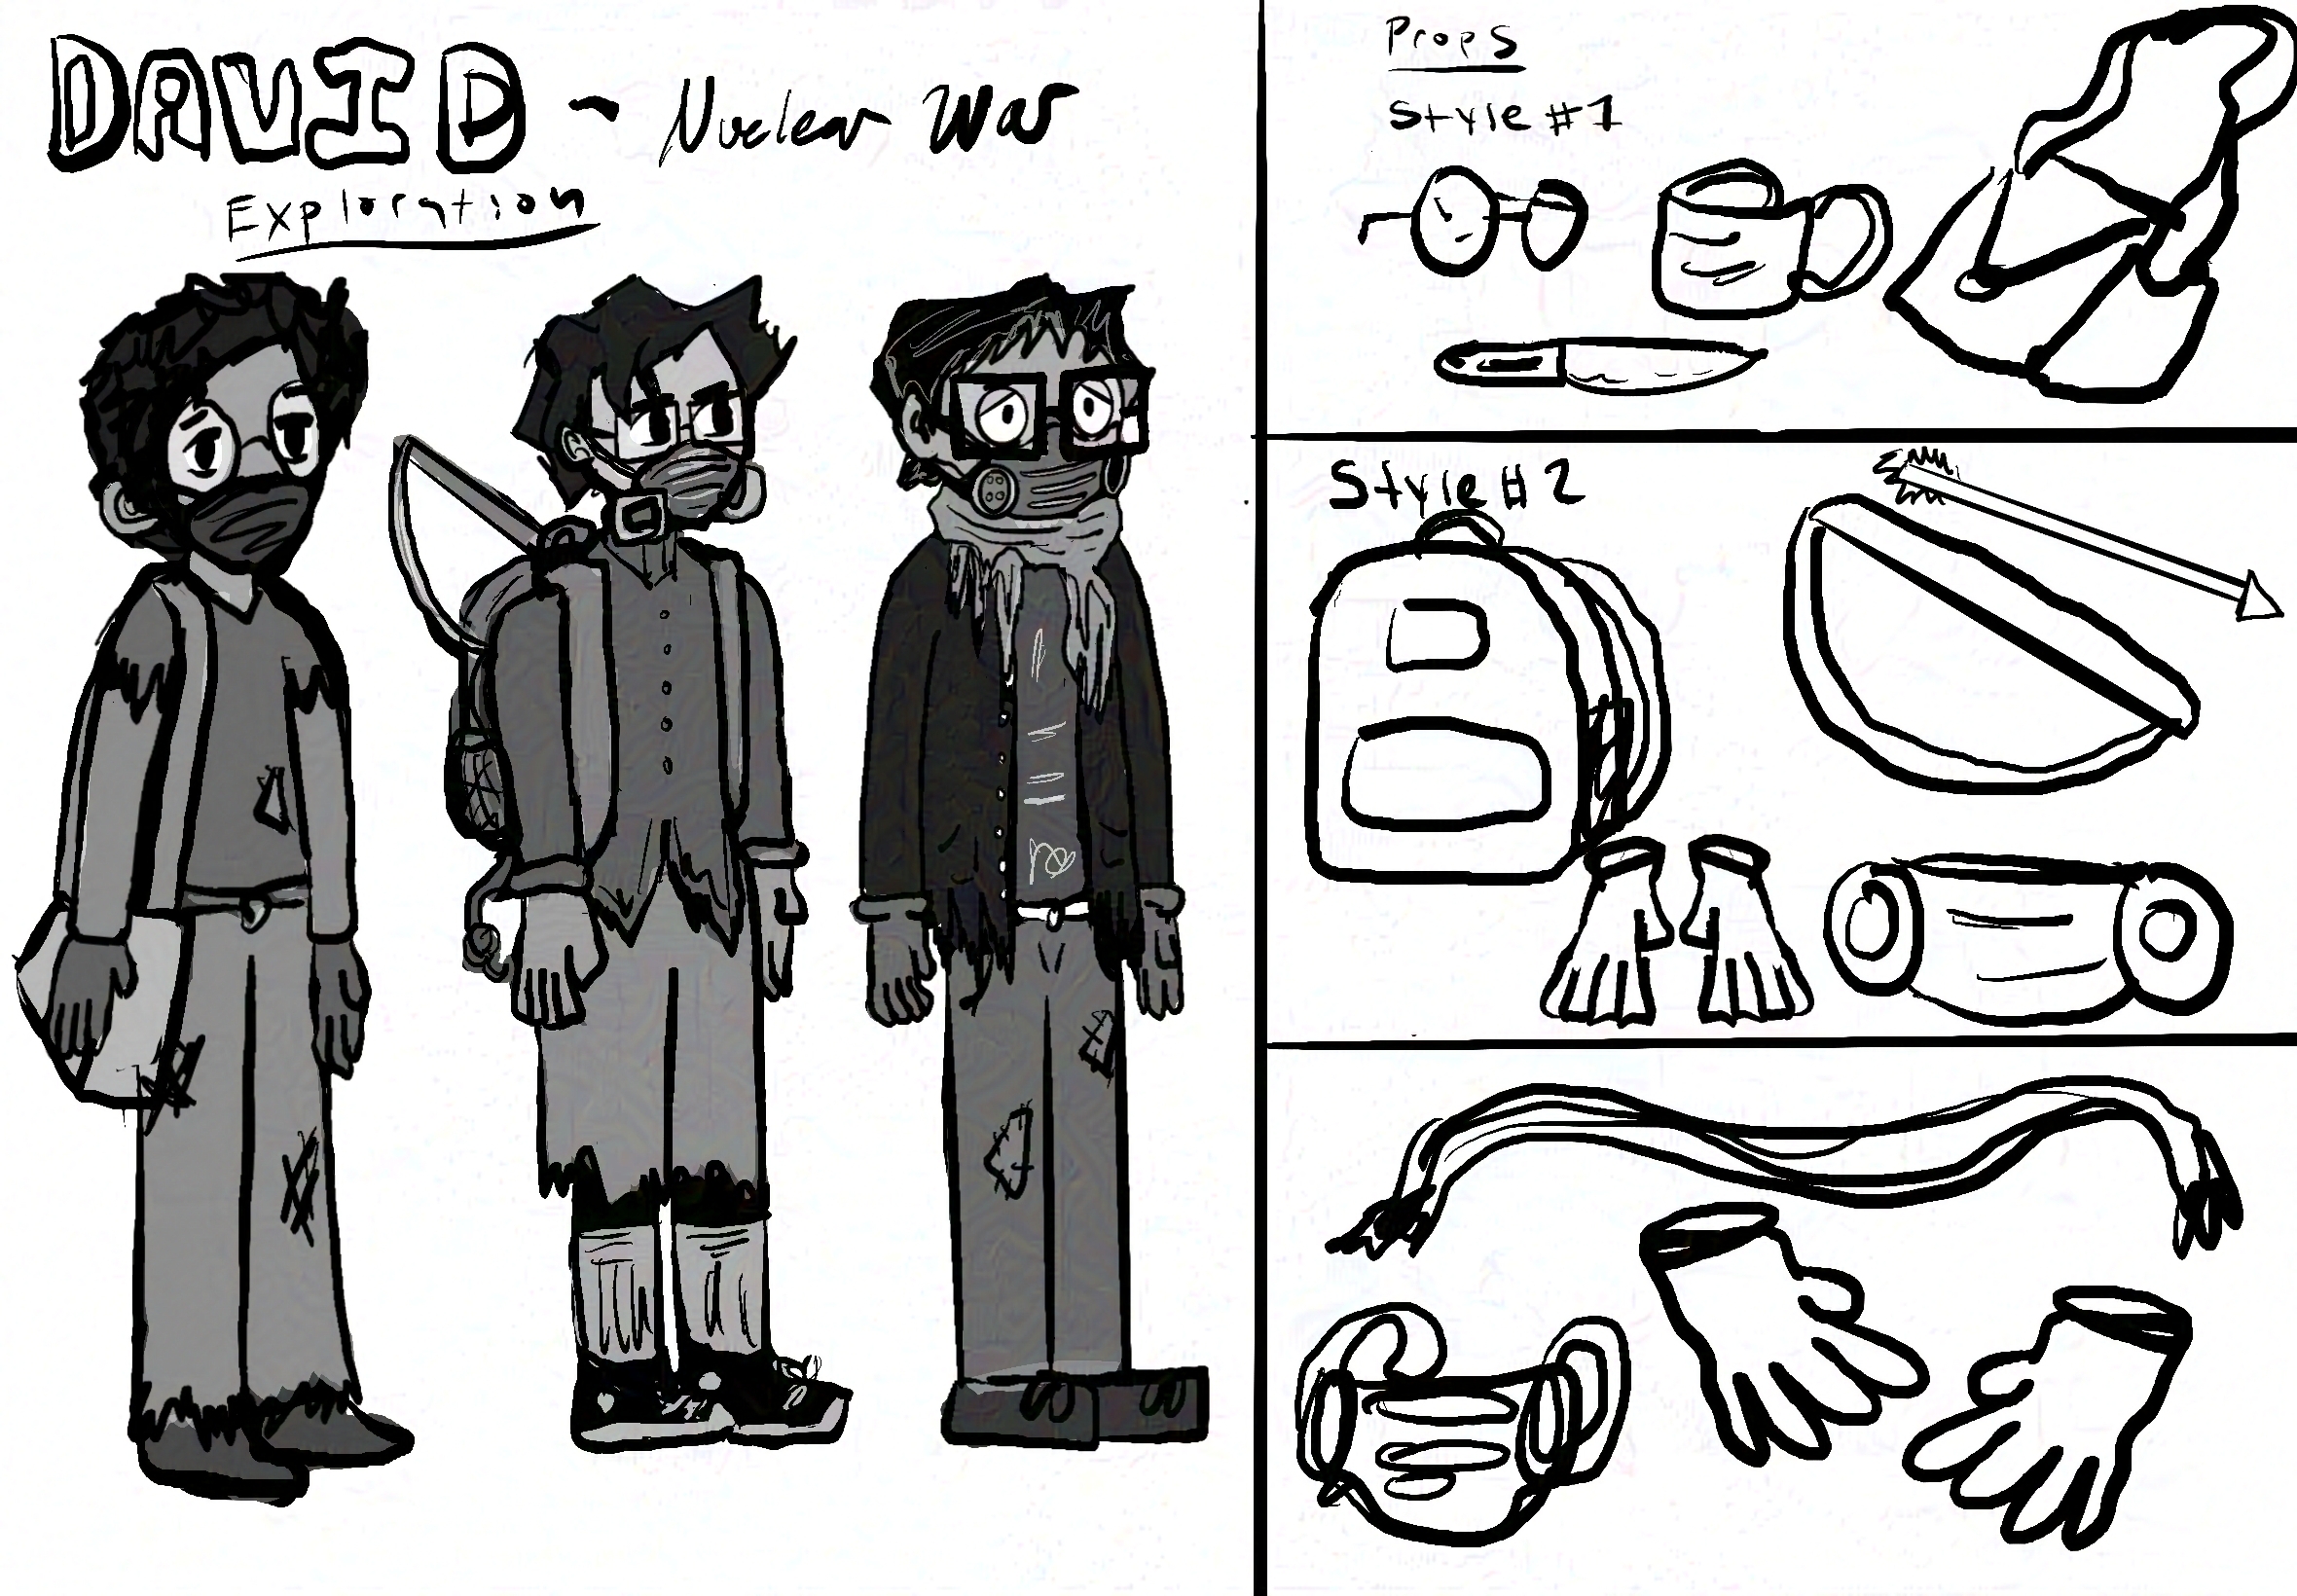 DAVID - Nuclear War
Exploration
Props
Style #1
Style # 2